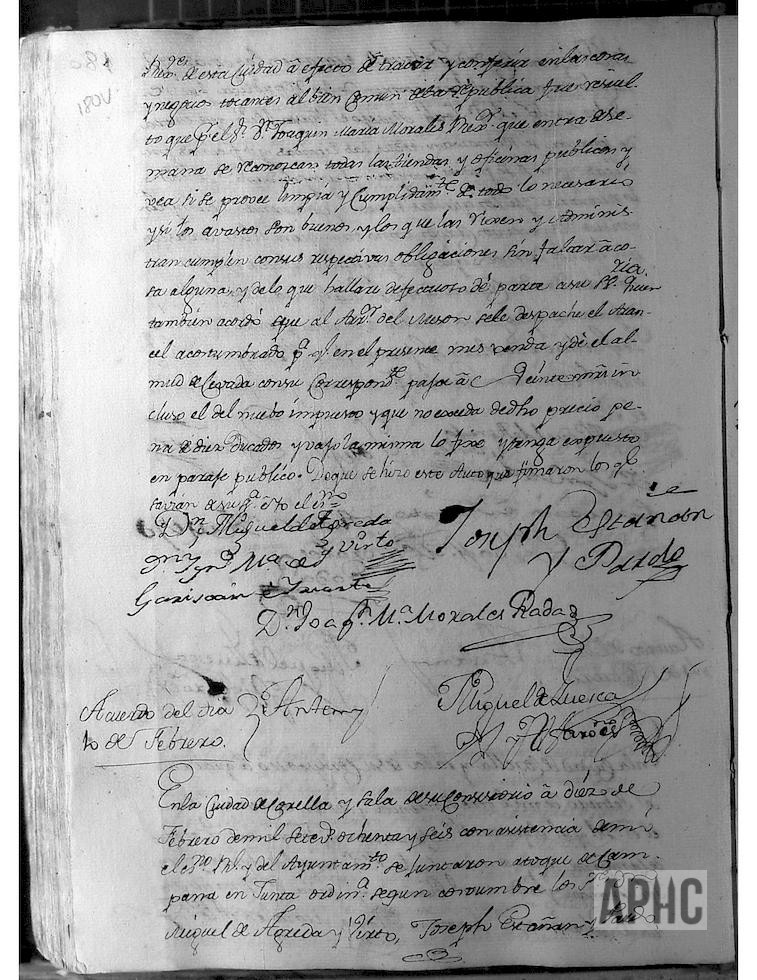 180
180v
Rex.res de esta Ciudad â efecto de tratar y conferir en las cosas
y negocios tocantes al bien Comun de la Republica fue resuel-
to que p.r el S.r D.n Joaquin Maria Morales Rex.r que entra de Se-
mana se reconozcan todas las tiendas y oficinas publicas y
vea si se provee limpia y Cumplidam.te de todo lo necesario
y si los avastos son buenos, y los que las viven y Adminis-
tran cumplen con sus respectivas obligaciones sin faltar â co-
sa alguna, y de lo que hallare defectuoso dé parte a su S.ria. Y
tambien acordó que al Arr.r del Meson sele despache el Aran-
cel acostumbrado p.a q.e en el presente mes venda y dé el al-
mud de Cevada con su Correspond.te paja â veinte mrs in
cluso el del nuebo impuesto y que no exceda de dho precio pe-
na de diez Ducados y vajo la misma lo fixe y tenga expuesto
en paraje publico. De que se hizo este Auto que firmaron los q.e
savian de su S.a è Yo el ss.no
D.n Miguel de Agreda
y Virto
Joseph Estañan
y Pardo
D.n Ign.o M.a de
Garisoain è Yriarte
D.n Joaq.n M.a Morales Rada
Acuerdo del dia
10 de Febrero.
Antemi
Miguel de Luesca
En la Ciudad de Corella y Sala de su Consistorio â diez de
Febrero de mil setez.s ochenta y seis con asistencia de mi
el ess.no Rl. y del Ayuntam.to se juntaron atoque de Cam-
pana en Junta ordin.a segun costumbre los S.res
Miguel de Agreda y Virto, Joseph Estañan y Pardo
APHC